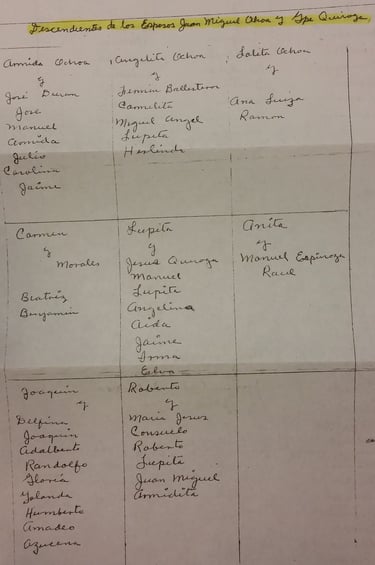 Descendientes de los Esposos Juan Miguel Ochoa y Gpe Quiroga,
Armida Ochoa
y
José Duran
Jose
Manuel
Armida
Julio
Carolina
Jaime
Angelita Ochoa
y
Fermin Ballesteros
Carmelita
Miguel Angel
Lupita
Herlinda
Lolita Ochoa
y
Ana Luiza
Ramon
Carmen
y
Morales
Beatriz
Benjamin
Lupita
y
Jesus Quiroga
Manuel
Lupita
Angelina
Aida
Jaime
Irma
Elva
Anita
y
Manuel Espinoza
Raul
Joaquin
y
Delfina
Joaquin
Adalberto
Randolfo
Gloria
Yolanda
Humberto
Amadeo
Azucena
Roberto
y
Maria Jesus
Consuelo
Roberto
Lupita
Juan Miguel
Armidita